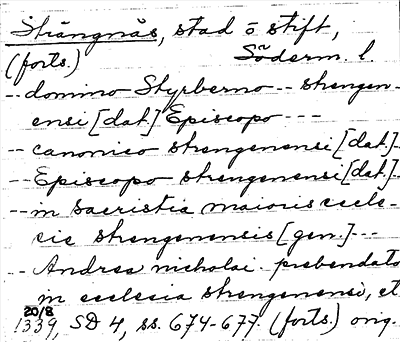 Strängnäs, stad o stift,
(forts.) Söderm. l.
-- domino Styrberno -- strengen-
ensi [dat.] Episcopo ---
-- canonico strengenensi [dat.]--
-- Episcopo strengenensi [dat.]--
-- in sacristia maioris eccle-
cie strengenensis [gen.]---
-- Andrea nicholai prebendato
in ecclesia strengenensi, et
20/8
1339, SD 4, ss. 674-677. (forts.) orig.